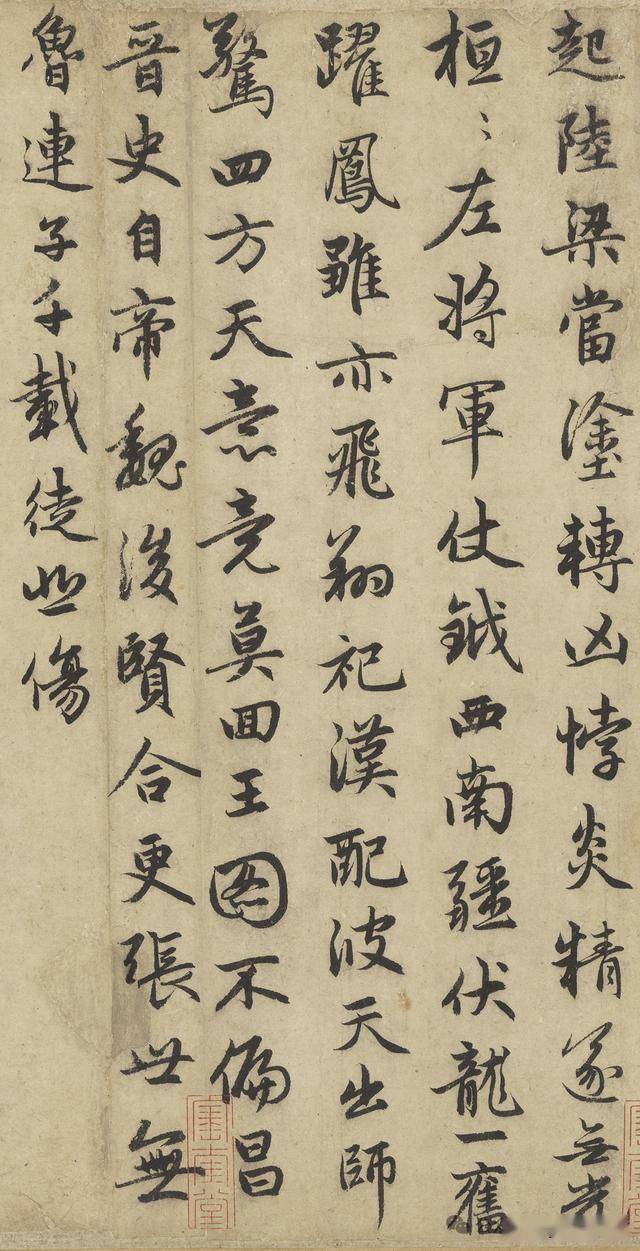 起陸梁當塗轉凶悖炎精遂无光
桓〻左將軍仗鉞西南疆伏龍一奮
躍鳳雖亦飛翔祀漢配彼天出師
驚四方天意竟莫回王圖不偏昌
晉史自帝魏後賢合更張世無
魯連子千載徒悲傷